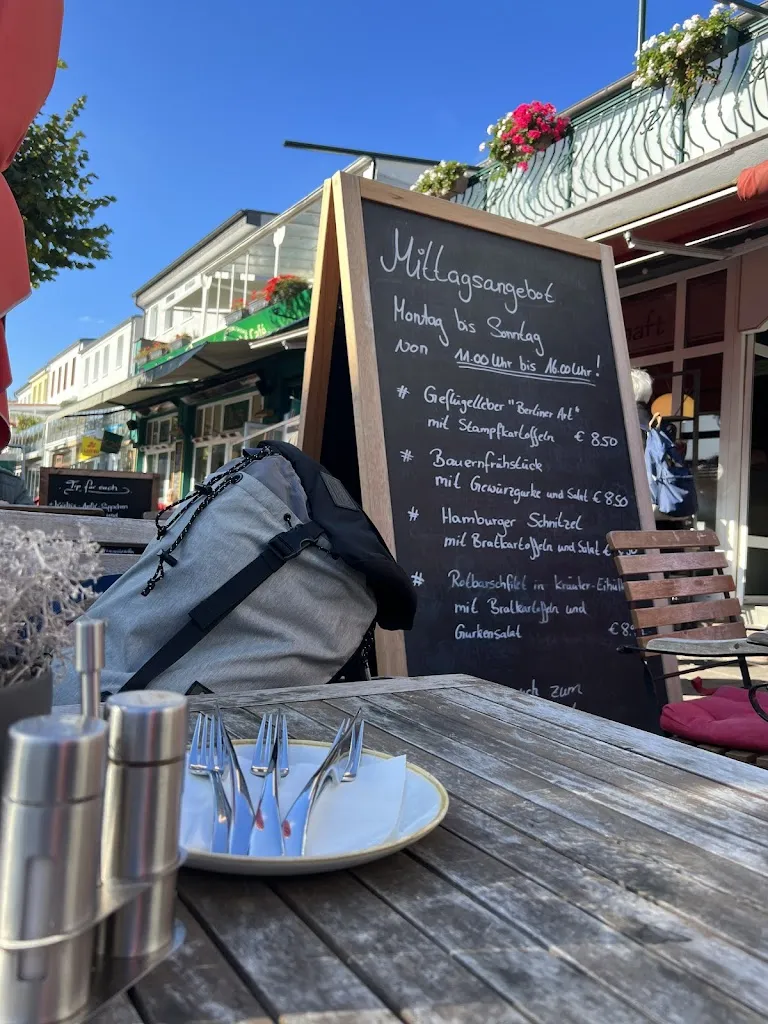 Mittagsangebot
Montag bis Sonntag
von 11.00 Uhr bis 16.00 Uhr!
# Geflügelleber "Berliner Art"
mit Stampfkartoffeln € 8.50
# Bauernfrühstück
mit Gewürzgurke und Salat € 8.50
# Hamburger Schnitzel
mit Bratkartoffeln und Salat €
# Rotbarschfilet in Kräuter-Eihülle
mit Bratkartoffeln und
Gurkensalat € 8.
zum
Café